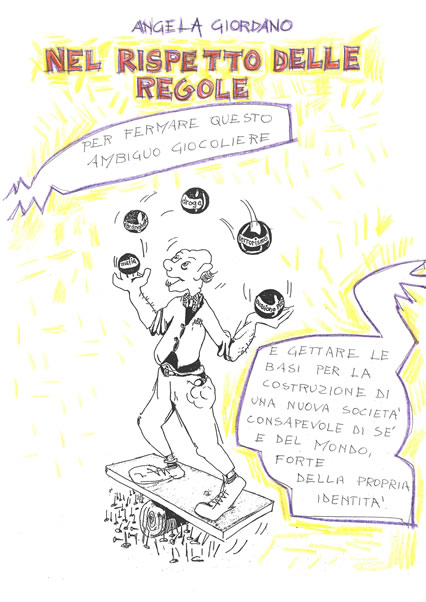 ANGELA GIORDANO
NEL RISPETTO DELLE
REGOLE
PER FERMARE QUESTO
AMBIGUO GIOCOLIERE
droga
mafia
E GETTARE LE
BASI PER LA
COSTRUZIONE DI
UNA NUOVA SOCIETA'
CONSAPEVOLE DI SE'
E DEL MONDO,
FORTE
DELLA PROPRIA
IDENTITA'.